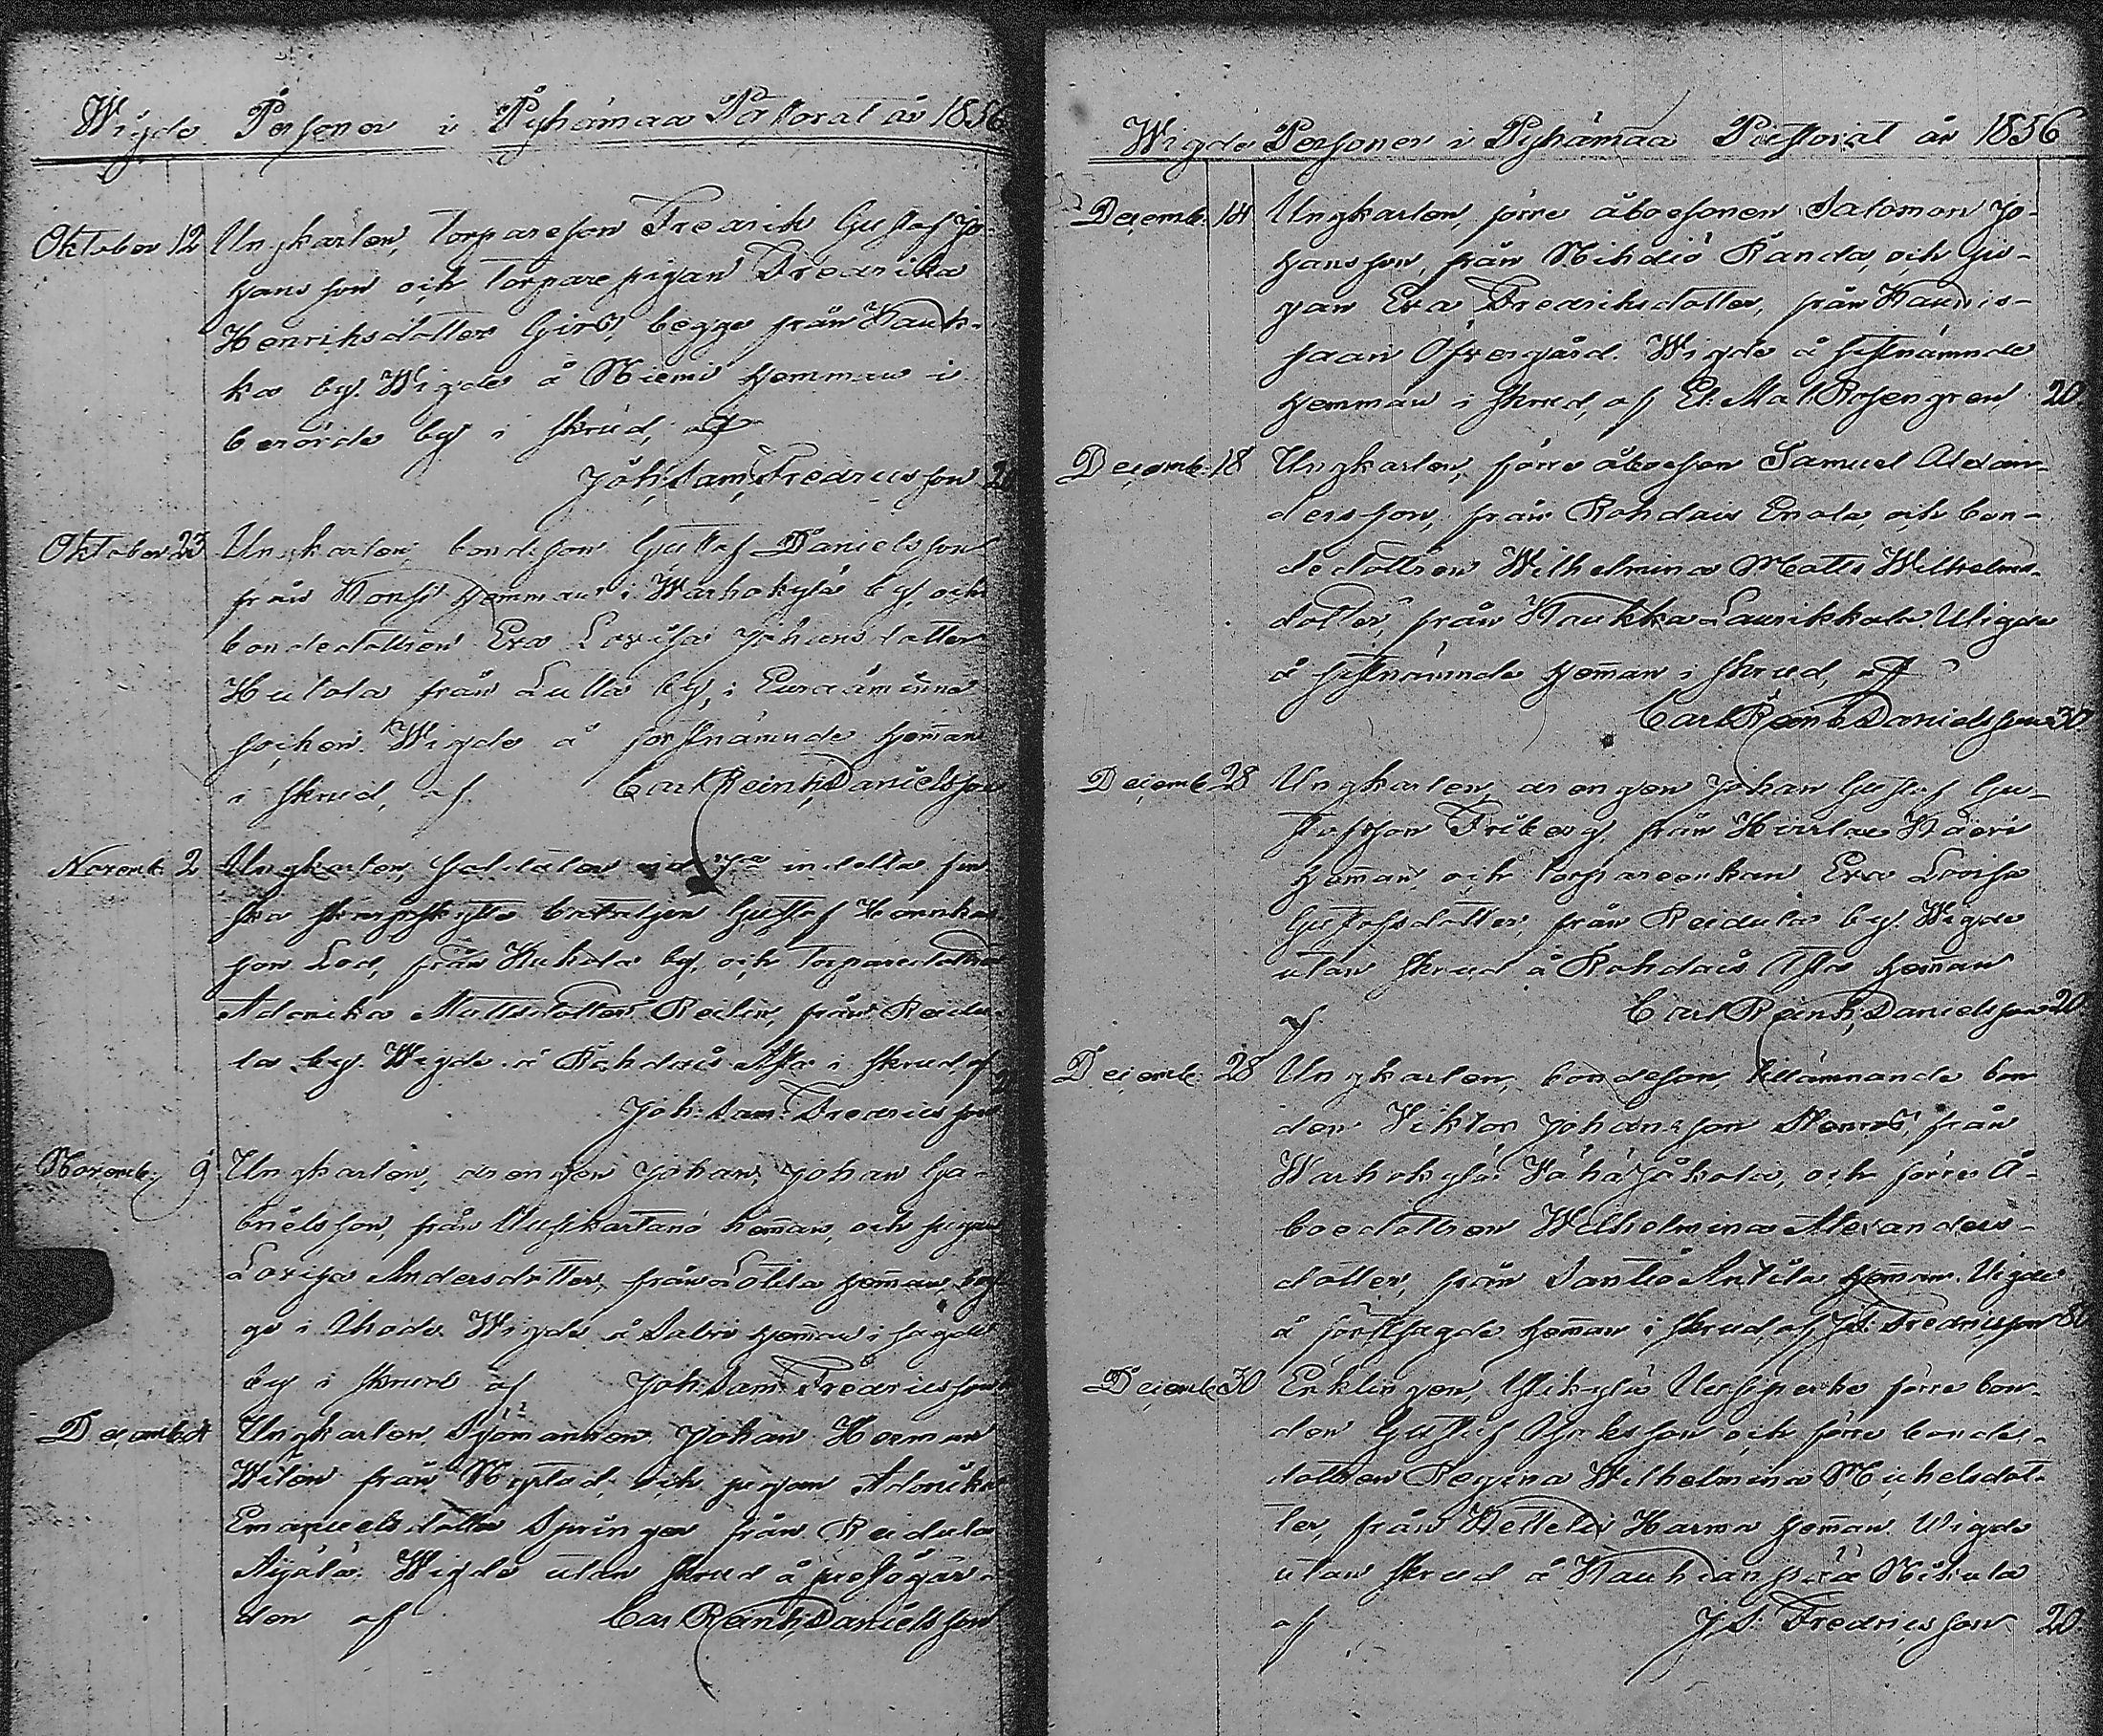 Wigde Personer i Pyhämaa Pastorat år 1856
Oktober 12 Ungkarlen, torparesson Fredrik Gustaf Jo-
hansson och torparepigan Fredrika
Henriksdotter Girs, begge från Kauk-
ka by. Wigde å Niemi hemman i
berörde by i skrud, af
Joh. Sam. Fredricsson
Oktober 23 Ungkarlen, bondeson Gustaf Danielsson
från hemman i Warhokylä by, och
bondedottren Eva Lovisa Johansdotter
Hutola från Lutta by, i Euraåminne
socken. Wigde å förstnämnde heman
i skrud, af Carl Reinh. Danielsson
Novemb. 2 Ungkarlen, soldaten vid 7de indelta fin
ska skarpskytte bataljon Gustaf Henriks
son Lod, från Kukola by, och torparedottren
Adamika Mattsdotter Reilin, från Reidu-
la by. Wigde å Rohdais i skrud af
Joh. Sam. Fredricsson
Novemb. 9 Ungkarlen, drengen Johan Johan Ga-
brielsson, från Uusikartano heman, och pigan
Lovisa Andersdotter, från Lotila heman, beg
ge i Ihode. Wigde å Salvi heman i sagde
by i skrud af Joh. Sam. Fredricsson
Decemb. 4 Ungkarlen Sjömannen Johan Herman
Wilen från Nystad, och pigan Adamika
Emanuelsdotter Springer från Reidula
Äijälä. Wigde utan skrud å prestgår-
den af Carl Reinh. Danielsson
Wigde Personer i Pyhämaa Pastorat år 1856
Decemb. 14 Ungkarlen, förre åboesonen Salomon Jo-
hansson, från Nihdiö Randa, och pi-
gan Eva Fredriksdotter, från Kaunis-
saari Öfvergård. Wigde å sistnämnde
hemman i skrud, af El. Mat. Rosengren 20
Decemb. 18 Ungkarlen, förre åboeson Samuel Alexan-
dersson, från Rohdais Enola, och bon-
dedottren Wilhelmina Matts Wilhelms-
dotter, från Kaukka Laurikkala. Wigde
å sistnämnde heman i skrud, af
Carl Reinh. Danielsson 30
Decemb. 28 Ungkarlen, drengen Johan Gustaf Gu-
stafsson Friberg, från Hirslax Kaeri
heman, och torpareenkan Eva Lovisa
Gustafsdotter, från Reidula by. Wigde
utan skrud å Rohdais heman
af Carl Reinh. Danielsson 20
Decemb. 28 Ungkarlen, bondeson, tillämnande bon
den Viktor Johansson Stenros, från
Warhokylä Vähäjäkola, och förre å-
boedottren Wilhelmina Alexanders-
dotter, från Santio Antila heman. Wigde
å förstsagde heman i skrud, af J. S. Fredricsson 80
Decemb. 30 Enklingen, Ylikylä Uusiperko förre bon-
den Gustaf och förre bonde-
dottren Regina Wilhelmina Michelsdot-
ter, från Kettelä Harma heman. Wigde
utan skrud å Kauhianpää Nikula
af J. S. Fredricsson 20